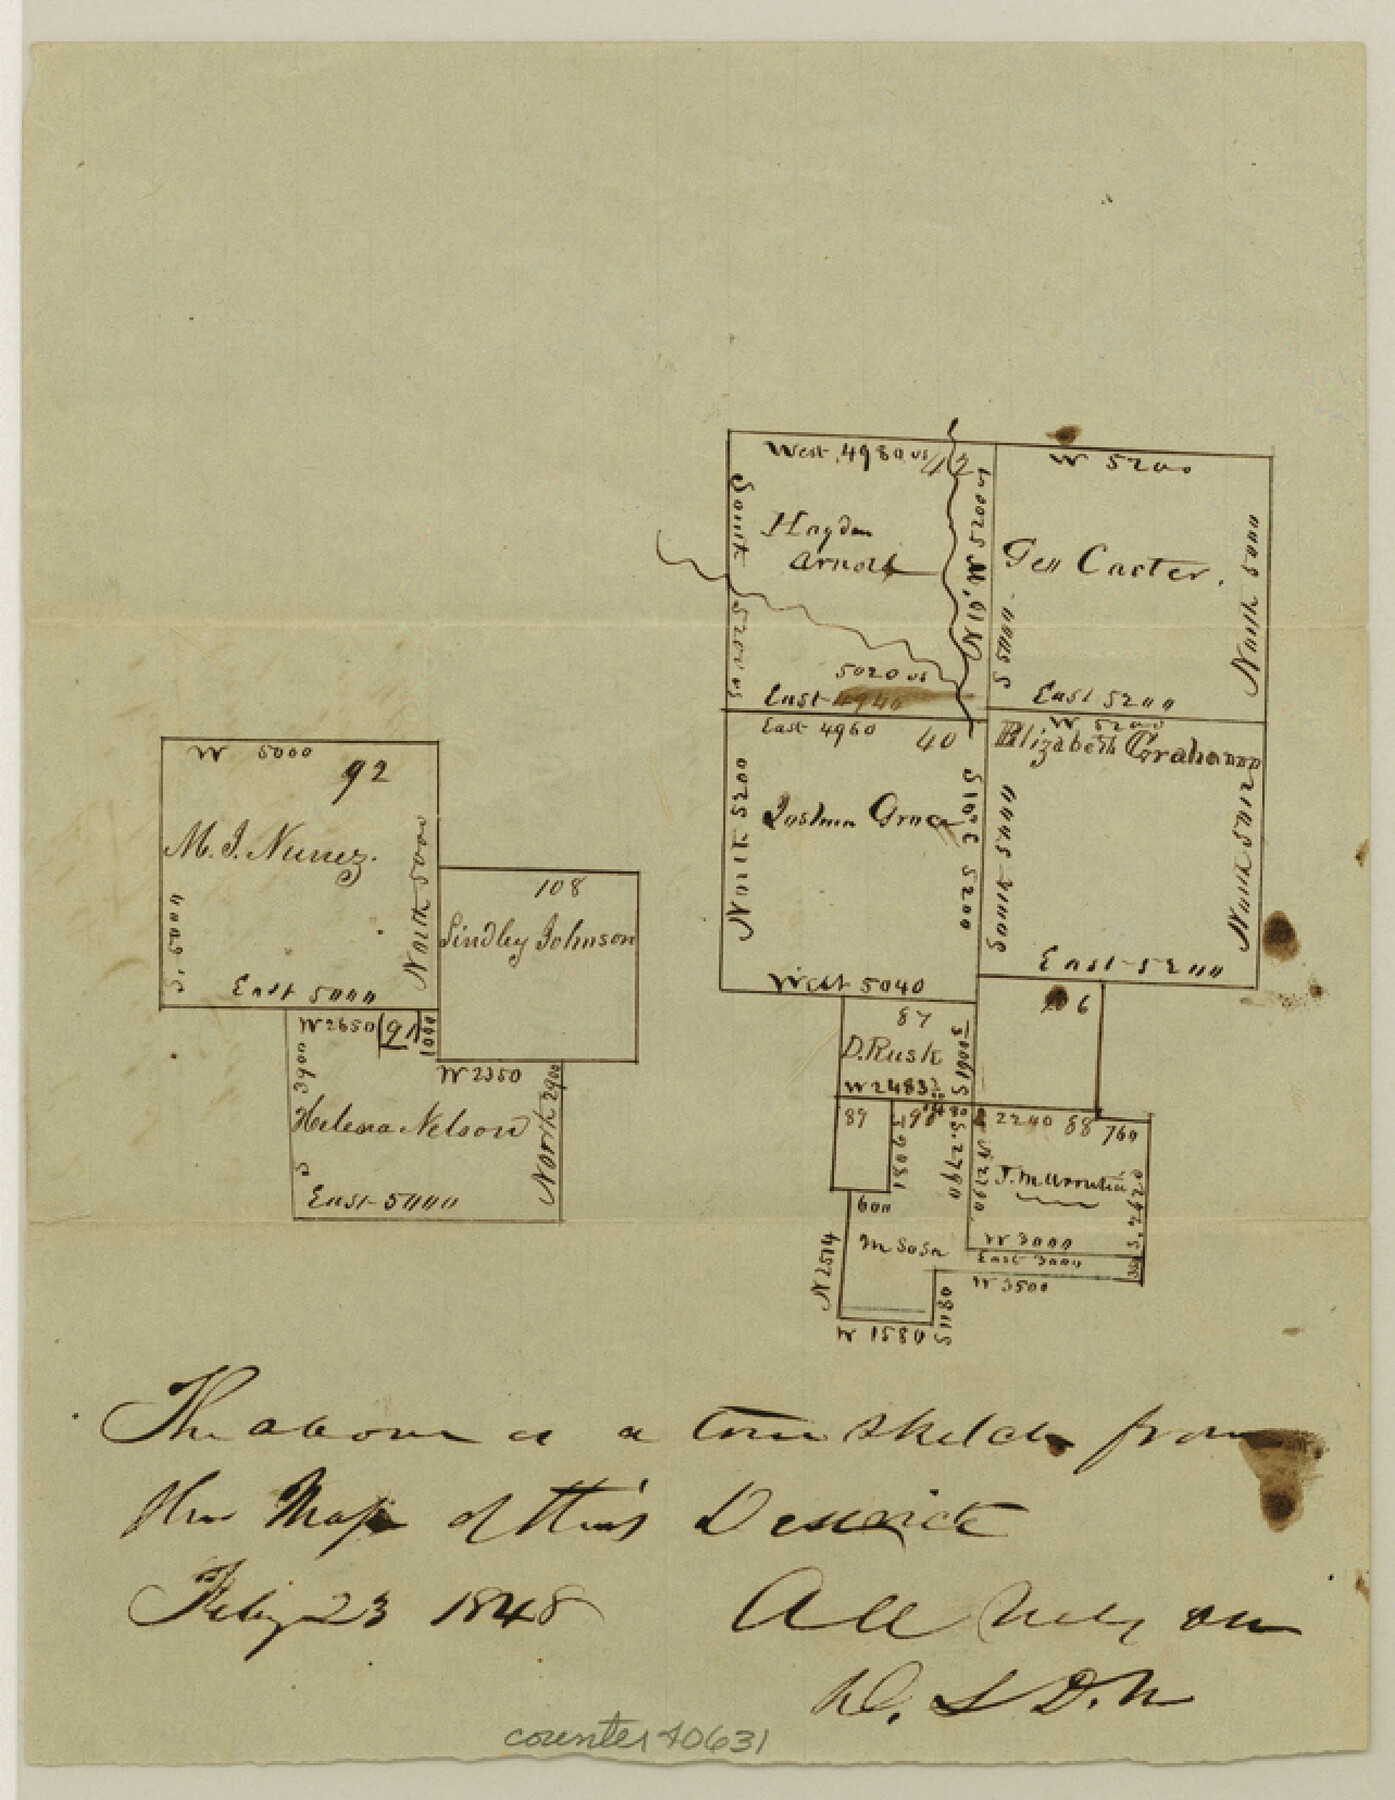 West 4980 vs 42
W 5200
South 5200 vs
Hayden
Arnold
N 10 W 5200 vs
Geo Carter.
S 5000
North 5000
5020 vs
East 4940
East 5200
East 4960
40
W 5200
Elizabeth Graham
North 5200
Joshua Grace
S 10° E 5200
South 5000
North 5012
West 5040
East 5200
W 5000
92
M. J. Nunez.
S. 5000
North 5000
East 5000
108
Lindley Johnson
W 2650
91
1000
W 2350
3900
S
Helena Nelson
North 2900
East 5000
87
D. Rusk
S 1900
W 2483
106
89
90
480
2240
88
760
S. 2790
N 2290
S. 2620
W 3000
East 3000
W 3500
600
M Sosa
N 2514
S 1180
W 1580
The above is a true sketch from
the Map of this District
Feby 23 1848
D. S. D. N
counter 40631